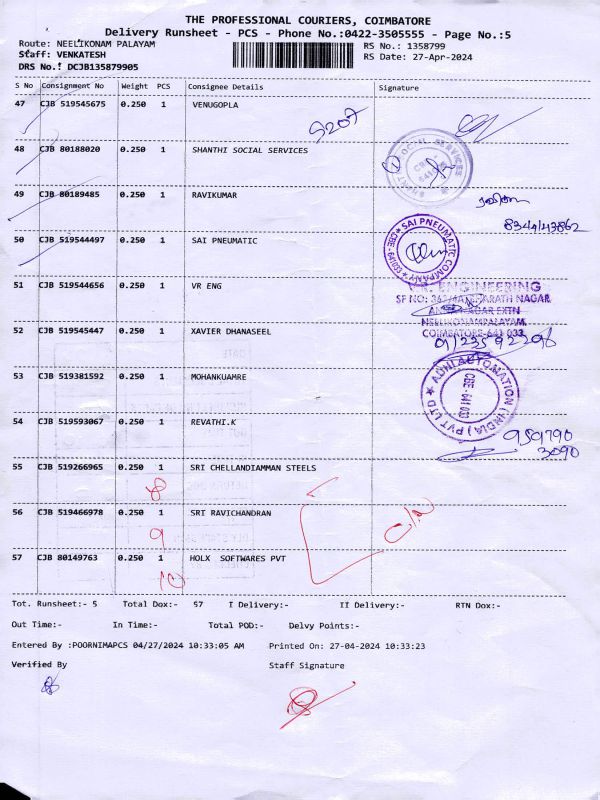 THE PROFESSIONAL COURIERS, COIMBATORE
Delivery Runsheet - PCS - Phone No.:0422-3505555 - Page No.:5
Route: NEELIKONAM PALAYAM
RS No.: 1358799
Staff: VENKATESH
RS Date: 27-Apr-2024
DRS No.: DCJB135879905
S No Consignment No Weight PCS Consignee Details Signature
47 CJB 519545675 0.250 1 VENUGOPLA
9207
48 CJB 80188020 0.250 1 SHANTHI SOCIAL SERVICES
SOCIAL SERVICES
49 CJB 80189485 0.250 1 RAVIKUMAR
8344143862
50 CJB 519544497 0.250 1 SAI PNEUMATIC
SAI PNEUMATIC COMPANY
CBE - 641033
51 CJB 519544656 0.250 1 VR ENG
V.R. ENGINEERING
SF NO: BHARATH NAGAR
NAGAR EXTN
NEELIKONAMPALAYAM,
COIMBATORE-641 033
52 CJB 519545447 0.250 1 XAVIER DHANASEEL
53 CJB 519381592 0.250 1 MOHANKUAMRE
ADHI AUTOMATION (INDIA) PVT LTD
CBE - 641 033
54 CJB 519593067 0.250 1 REVATHI.K
959790
3090
55 CJB 519266965 0.250 1 SRI CHELLANDIAMMAN STEELS
8
56 CJB 519466978 0.250 1 SRI RAVICHANDRAN
9
57 CJB 80149763 0.250 1 HOLX SOFTWARES PVT
10
Tot. Runsheet:- 5 Total Dox:- 57 I Delivery:- II Delivery:- RTN Dox:-
Out Time:- In Time:- Total POD:- Delvy Points:-
Entered By :POORNIMAPCS 04/27/2024 10:33:05 AM Printed On: 27-04-2024 10:33:23
Verified By Staff Signature